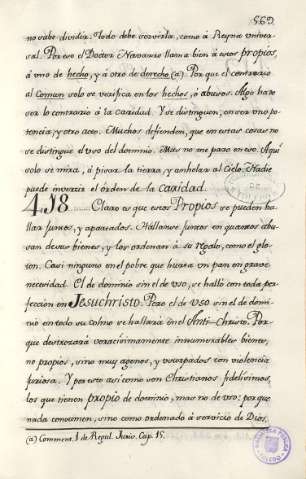 569
no sabe dividir. Todo debe servirla, como á Reyna univer-
sal. Por eso el Doctor Navarro llama bien á estos propios,
á uno de hecho, y á otro de derecho (a). Porque el contrario
al Comun solo se verifica en los hechos, ó abusos. Algo ha to
ser lo contrario á la caridad. Y se distinguen, en ser uno po-
tencia, y otro acto. Muchos defienden, que en estas cosas no
se distingue el uso del dominio. Mas no me paro en eso. Aquí
solo se mira, á pisar la tierra, y anhelar al Cielo. Nadie
puede invertir el órden de la caridad.
418. Claro es que estos Propios se pueden ha-
llar juntos, y apartados. Hállanse juntos en quantos abu-
san de sus bienes, y los ordenan á su regalo, como el glo-
ton. Casi ninguno en el pobre que hurta un pan en grave
necesidad. El de dominio sin el de uso, se halló con toda per-
feccion en Jesuchristo. Pero el de uso sin el de domi-
nio en todo su colmo se hallará en el Anti-Christo. Por-
que destrozará voracísimamente innumerables bienes,
no propios, sino muy agenos, y usurpados con violencia
furiosa. Y por esto así como son Christianos fidelísimos,
los que tienen propio de dominio, mas no de uso: porque
nada consumen, sino como ordenado á servicio de Dios,
(a) Comment. 1 de Regul. Cap. 15.